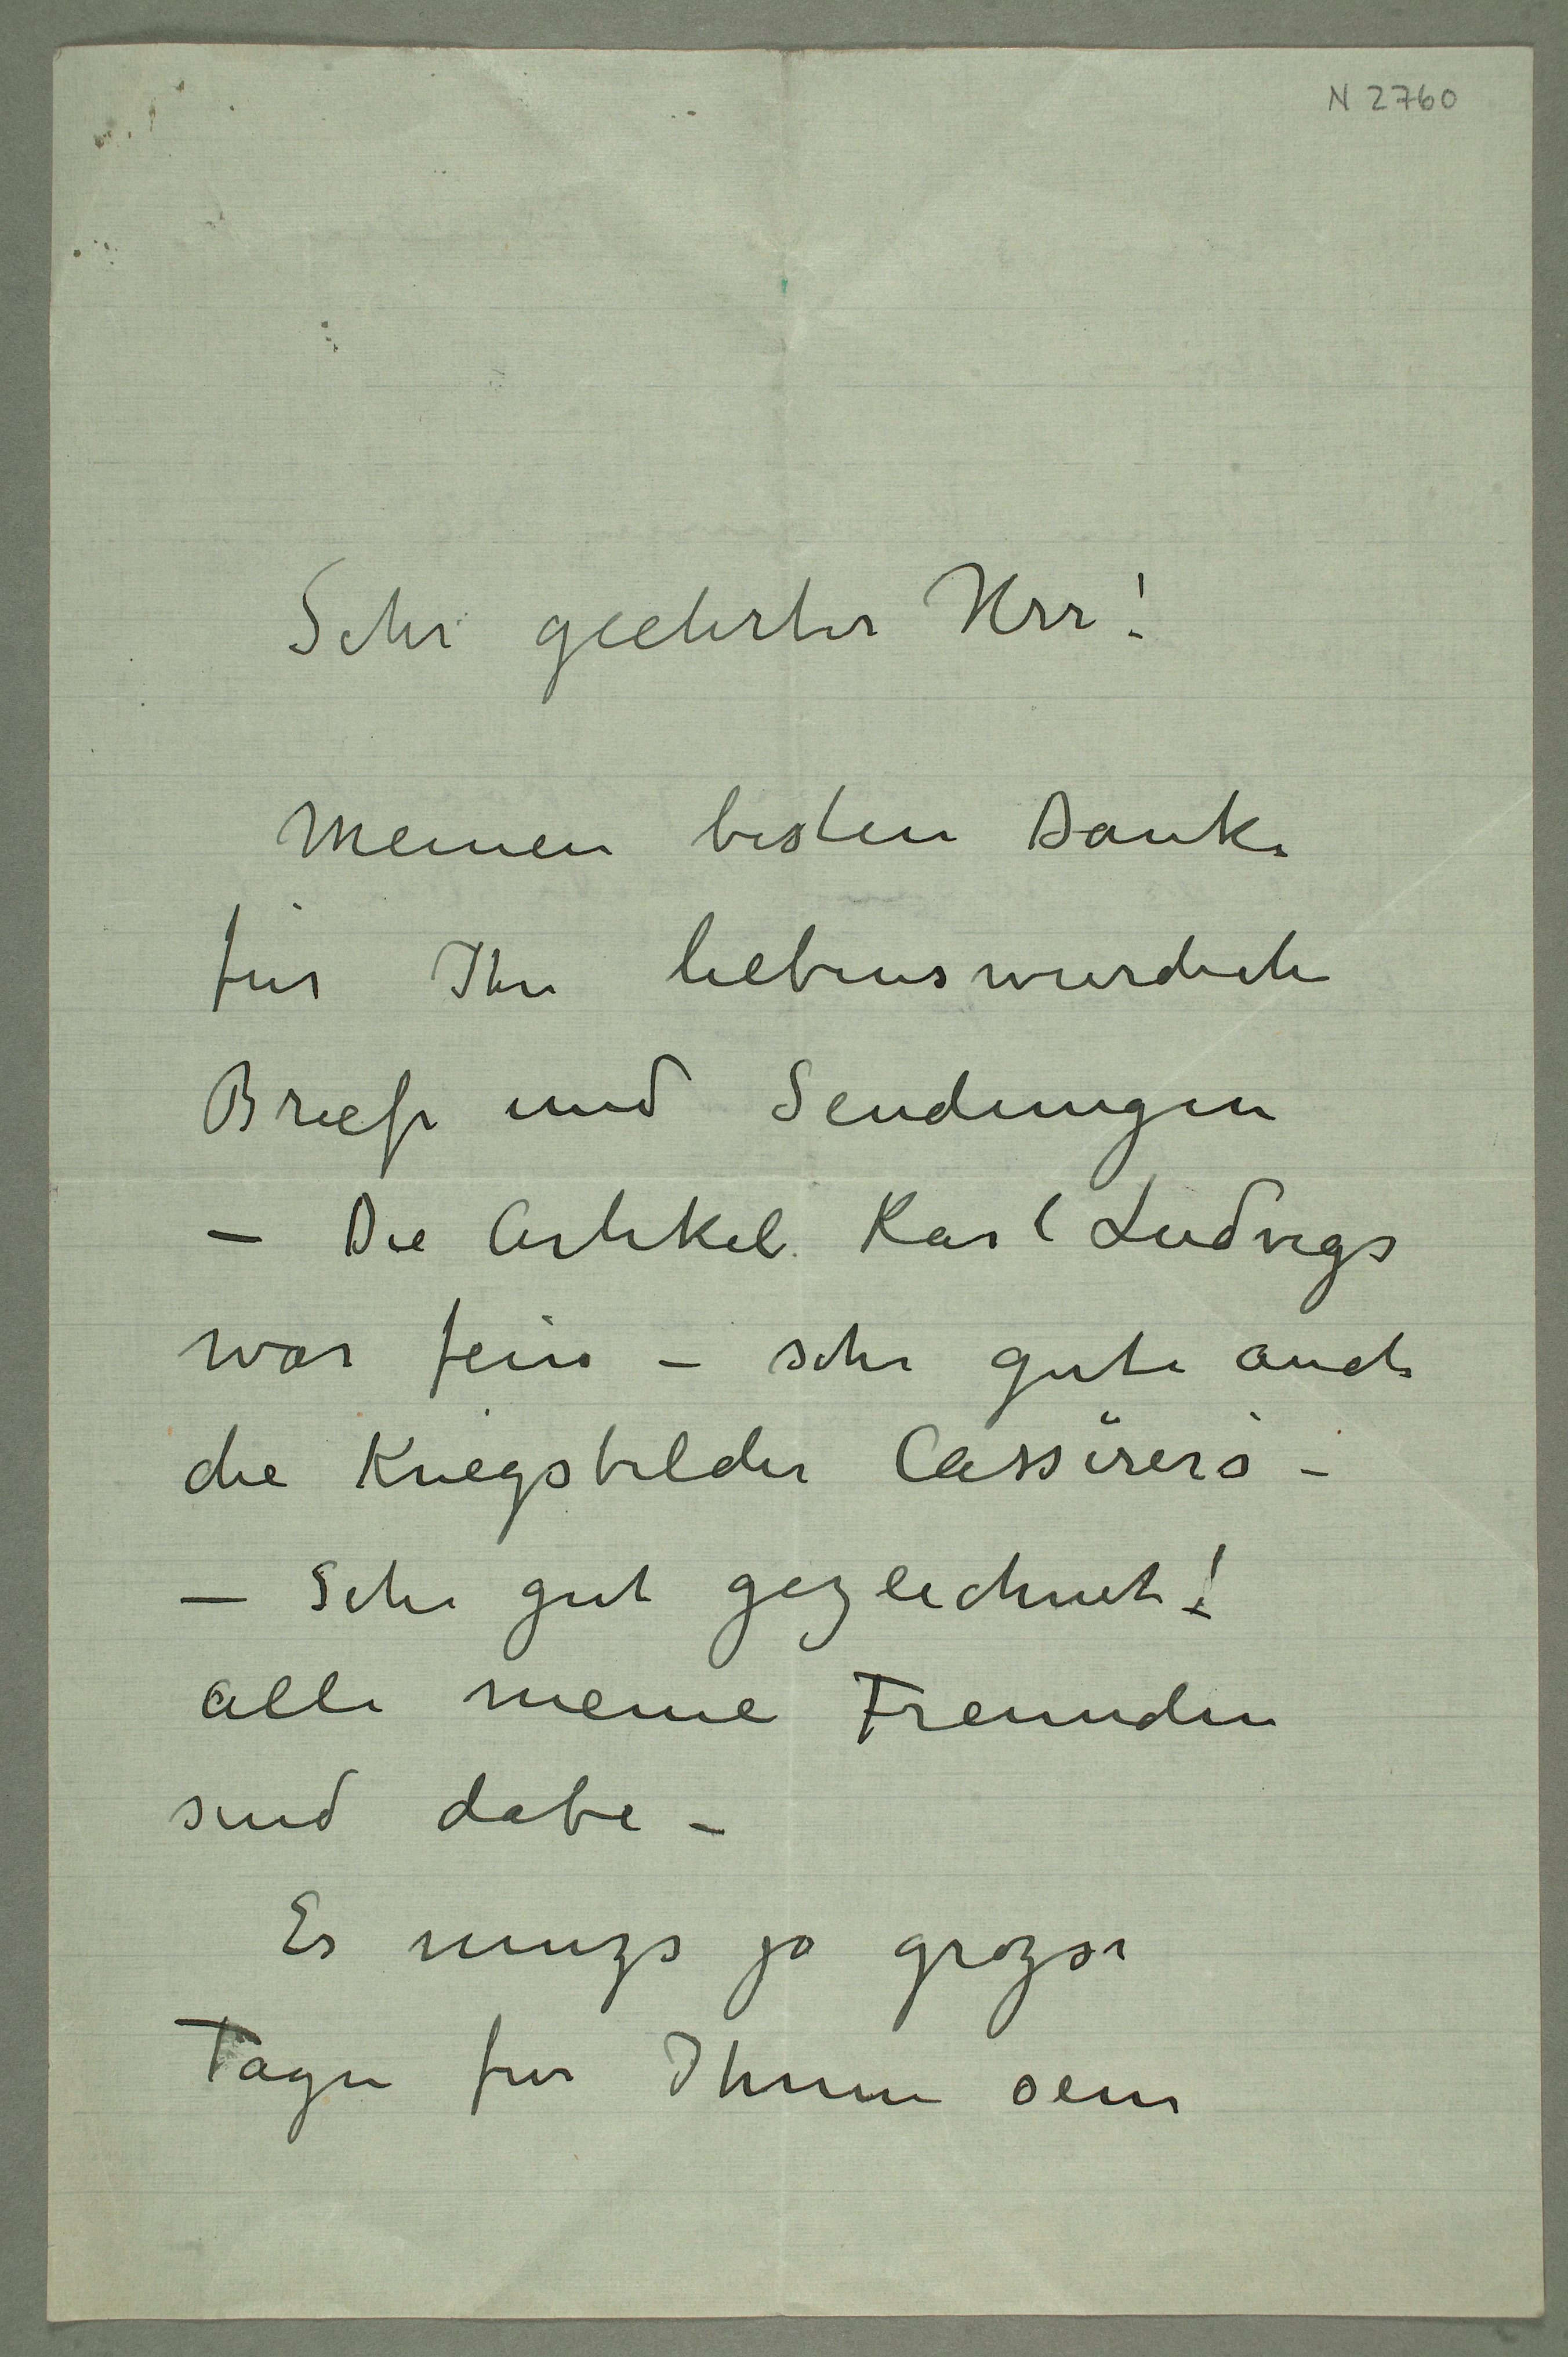 N 2760
Sehr geehrter Herr!
Meinen besten Dank
für Ihre liebenswurdiche
Briefe und Sendungen
– Die Artikel Karl Ludvigs
war fein – sehr gute auch
die Kriegsbilder Cassirers –
– Sehr gut gezeichnet!
alle meine Freunden
sind dabei –
Es muzs ja grozse
Tagen fur Ihnen sein